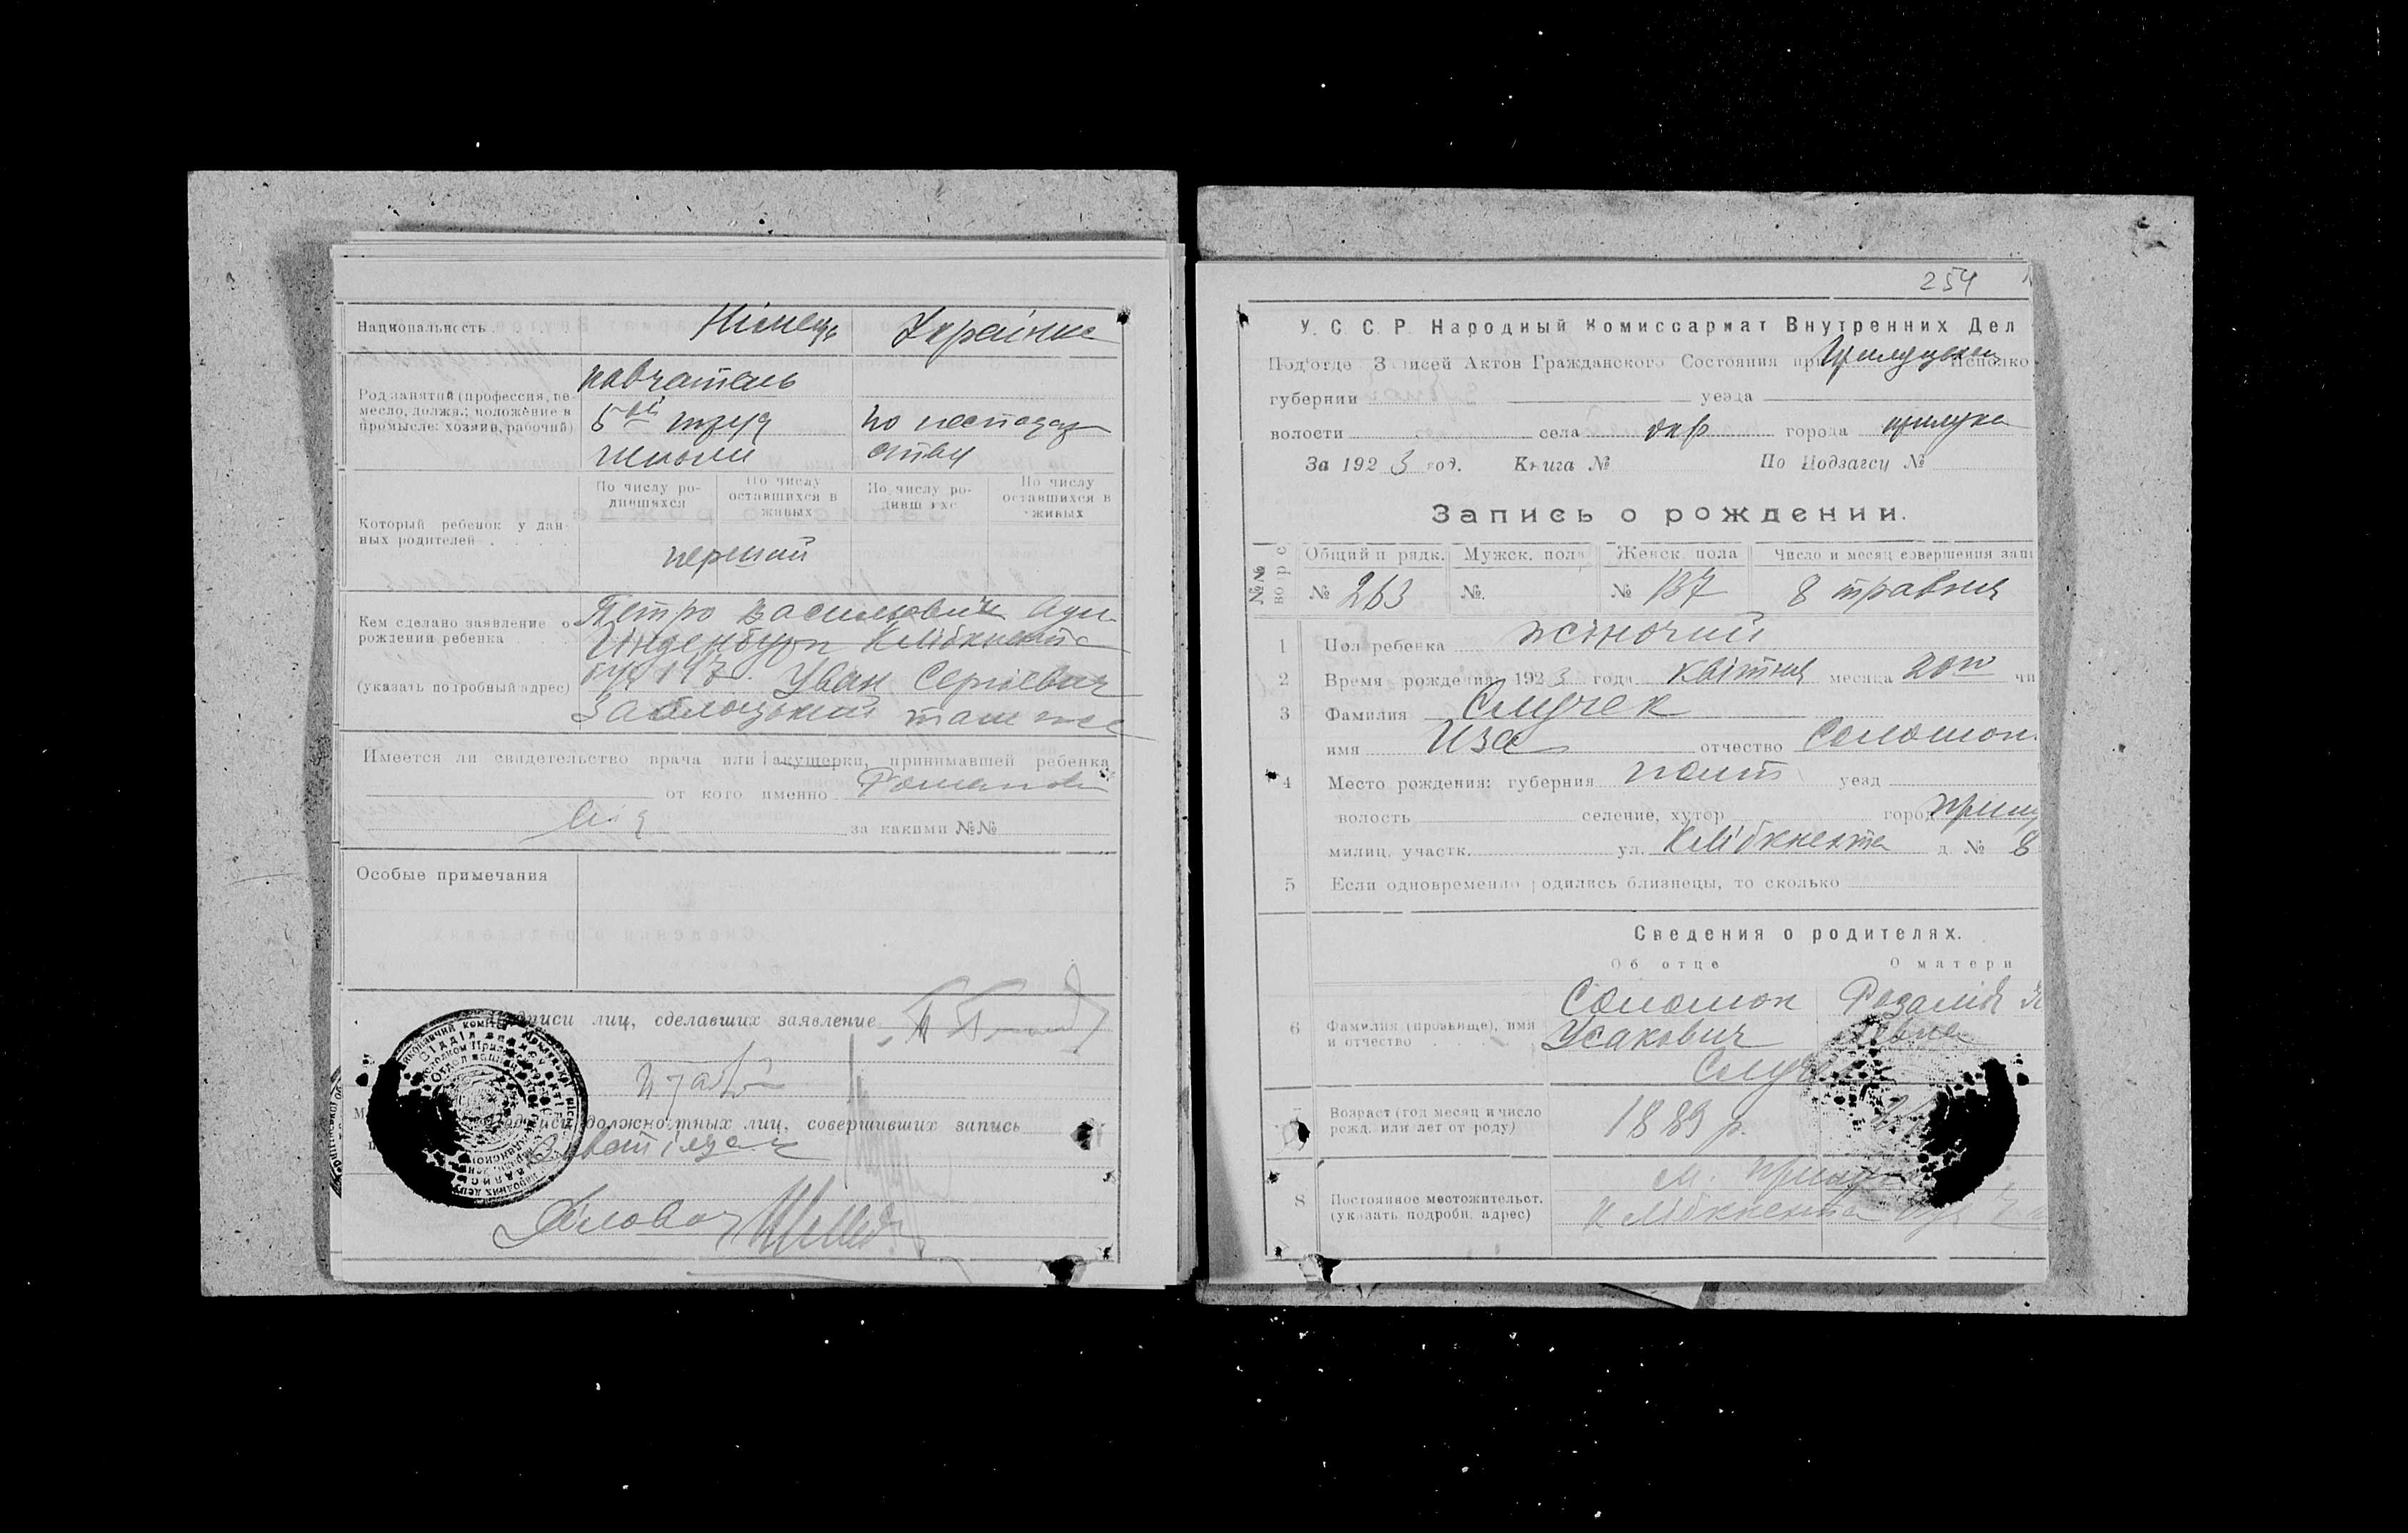 Национальность Німець Українка
Род занятий (профессия, ре-
месло, должн.; положение в
промысле: хозяин, рабочий)
навчатель
5ої труд
школи
по господар
ству
Который ребенок у дан-
ных родителей
По числу ро-
дившихся
По числу
оставшихся в
живых
По числу ро-
дивш хс
По числу
оставшихся в
живых
перший
Кем сделано заявление о
рождении ребенка
(указать подробный адрес)
Петро Васильович
К Лібкнехта
Іван Сергієвич
Заблоцький там же
Имеется ли свидетельство врача или акушерки, принимавшей ребенка
от кого именно
за какими №№
Особые примечания
Подписи лиц, сделавших заявление
Подписи должностных лиц, совершивших запись
Діловод
254
У. С. С. Р. Народный Комиссариат Внутренних Дел
Под'отде Записей Актов Гражданского Состояния при Прилуцьком Исполко
губернии уезда
волости села окр города прилука
За 1923 год. Книга № По Подзагсу №
Запись о рождении.
№№
во р о с
Общий п рядк. Мужск. пола Женск. пола Число и месяц совершения запи
№ 263 №. № 137 8 травня
1 Пол ребенка жіночий
2 Время рождения: 1923 года квітня месяца 20го чи
3 Фамилия Случек
имя Иза отчество Соломон.
4 Место рождения: губерния полт уезд
волость селение, хутор город Прилу
милиц. участк. ул. К Лібкнехта д. № 8
5 Если одновременно родились близнецы, то сколько
Сведения о родителях.
Об отце О матери
6 Фамилия (прозвище), имя
и отчество
Соломон
Усакович
Розалія
Случек
7 Возраст (год месяц и число
рожд. или лет от роду)
1889 р.
8 Постоянное местожительст.
(указать подробн. адрес)
м. Прилуки
К Лібкнехта